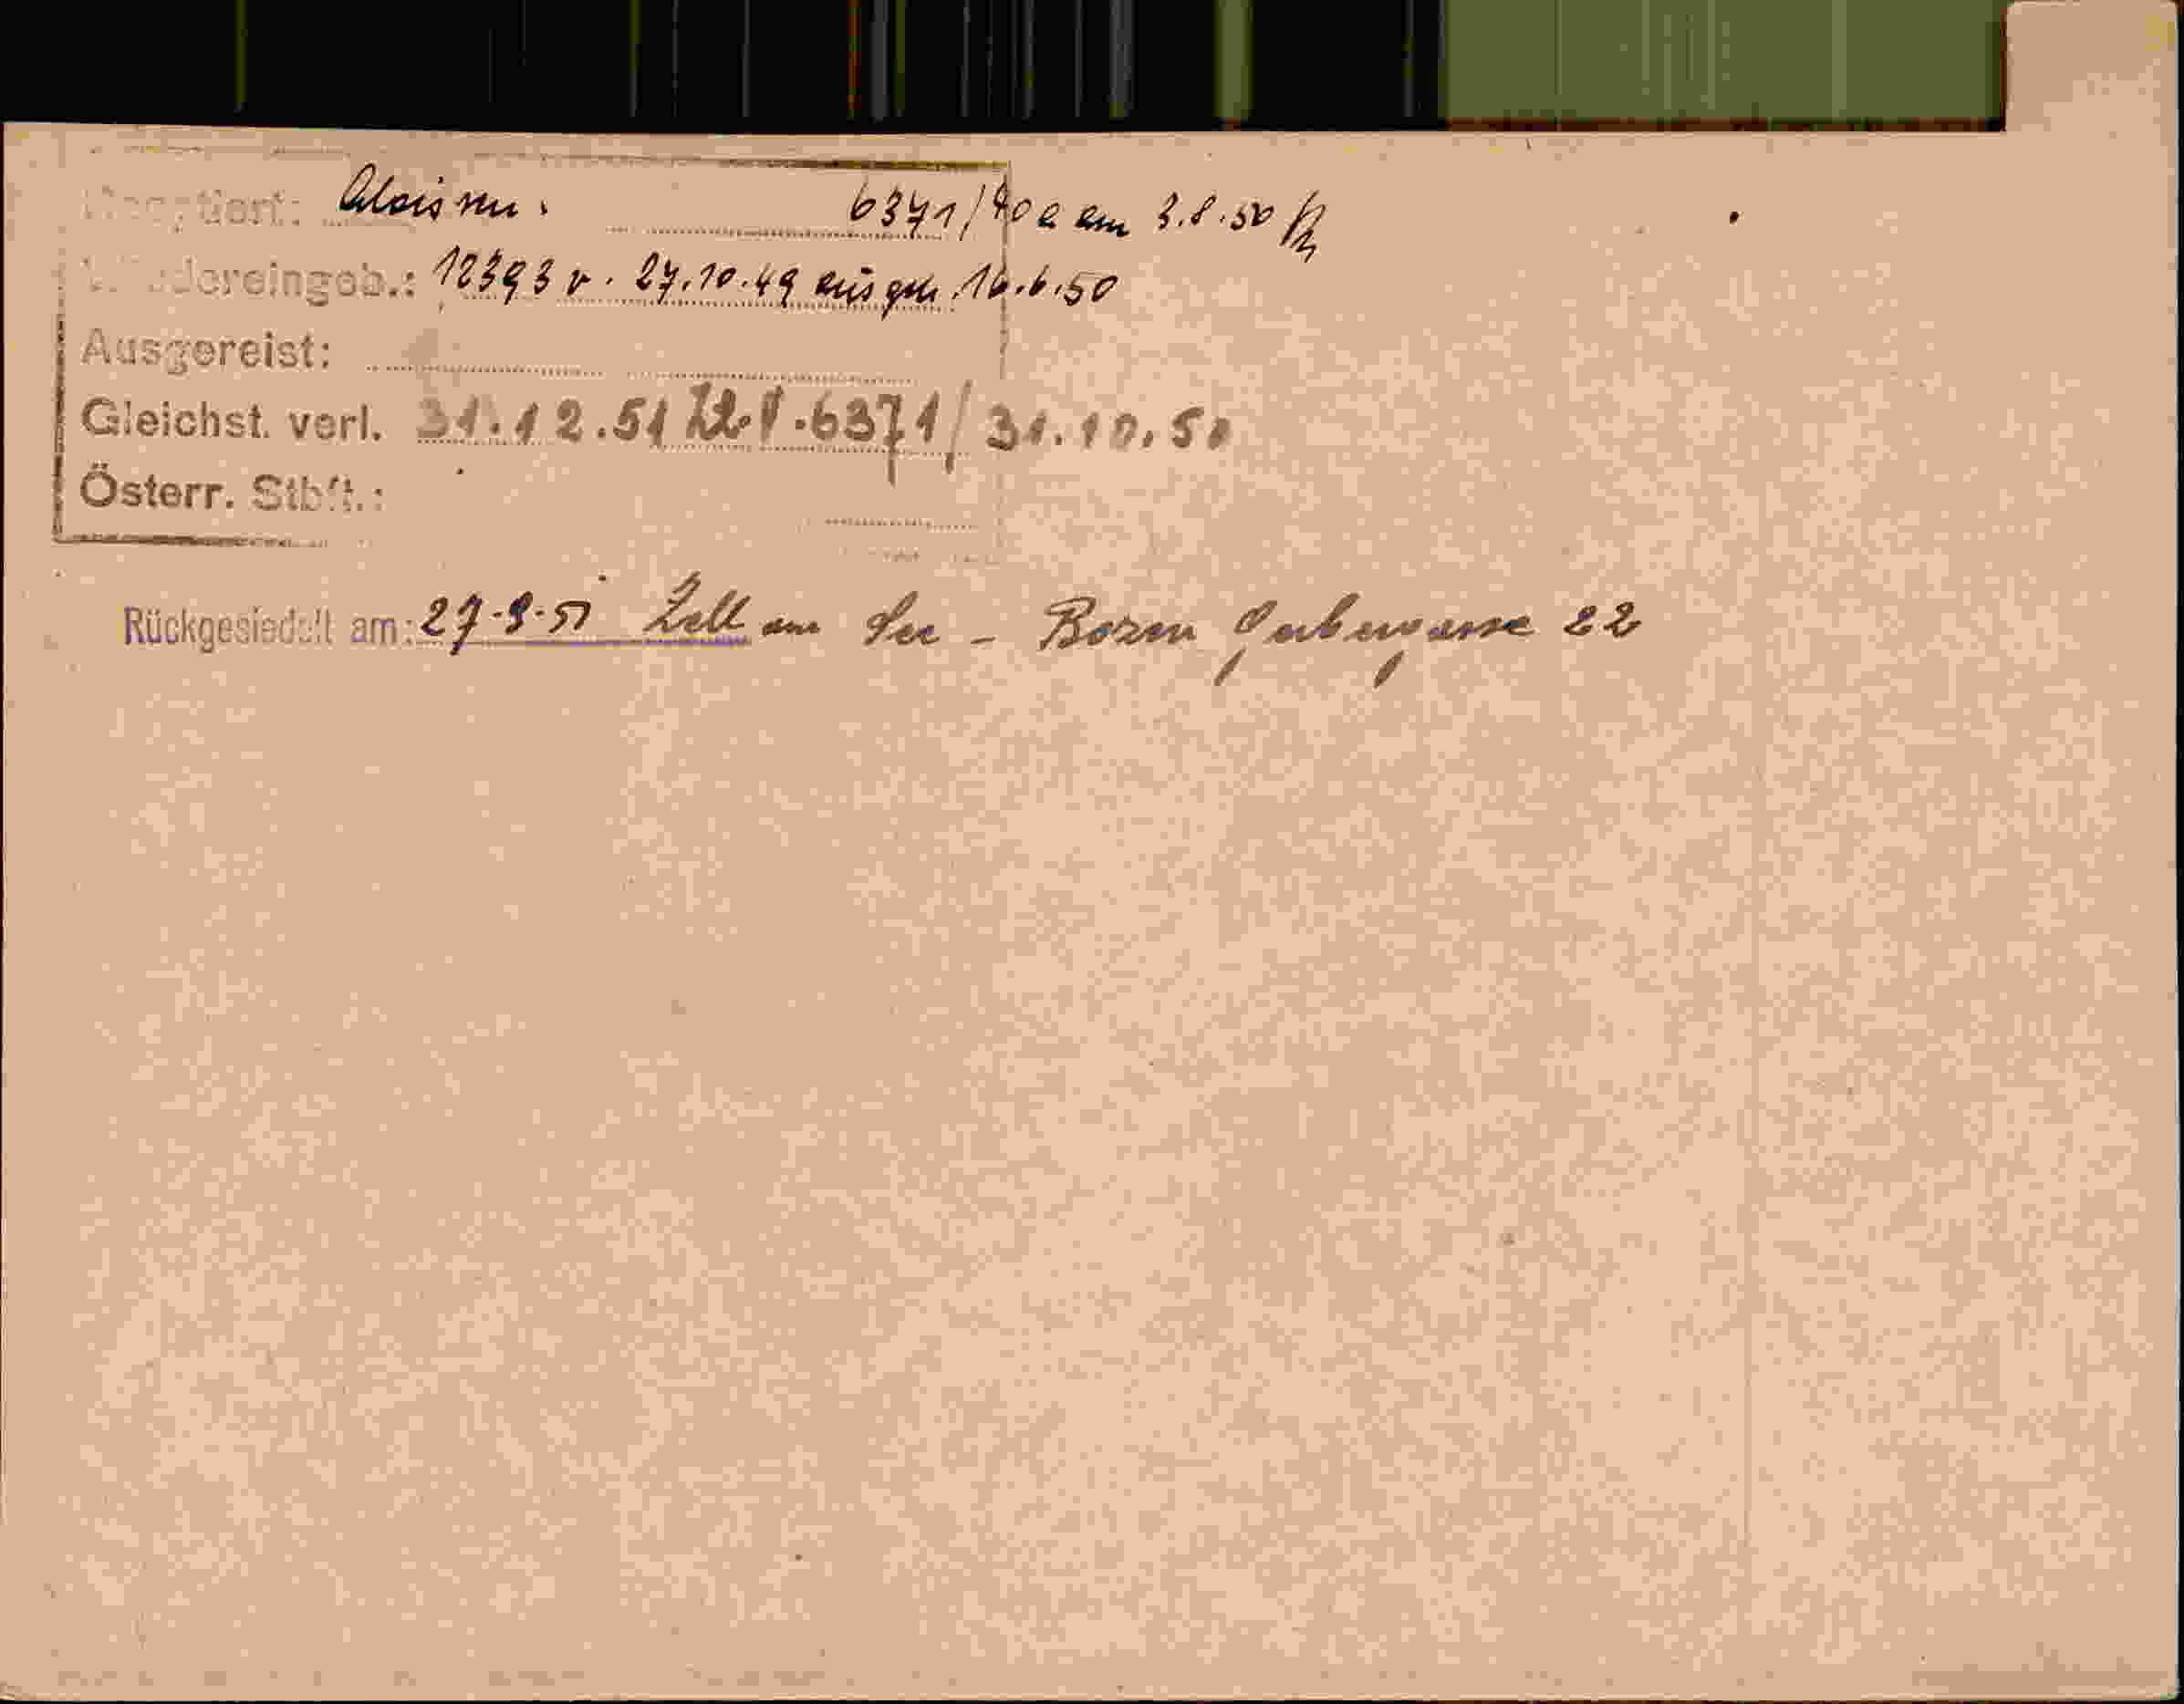 Reoptiert: Alois nu. 6371/40 e am 3.8.50
Wiedereingeb.: 12393 v. 27.10.49 ausgeh. 16.6.50
Ausgereist:
Gleichst. verl. 31.12.51 Zl. V.6371/ 31.10.50
Österr. Stbft.:
Rückgesiedelt am: 27.9.51 Zell am See - Bozen Gerbergasse 22